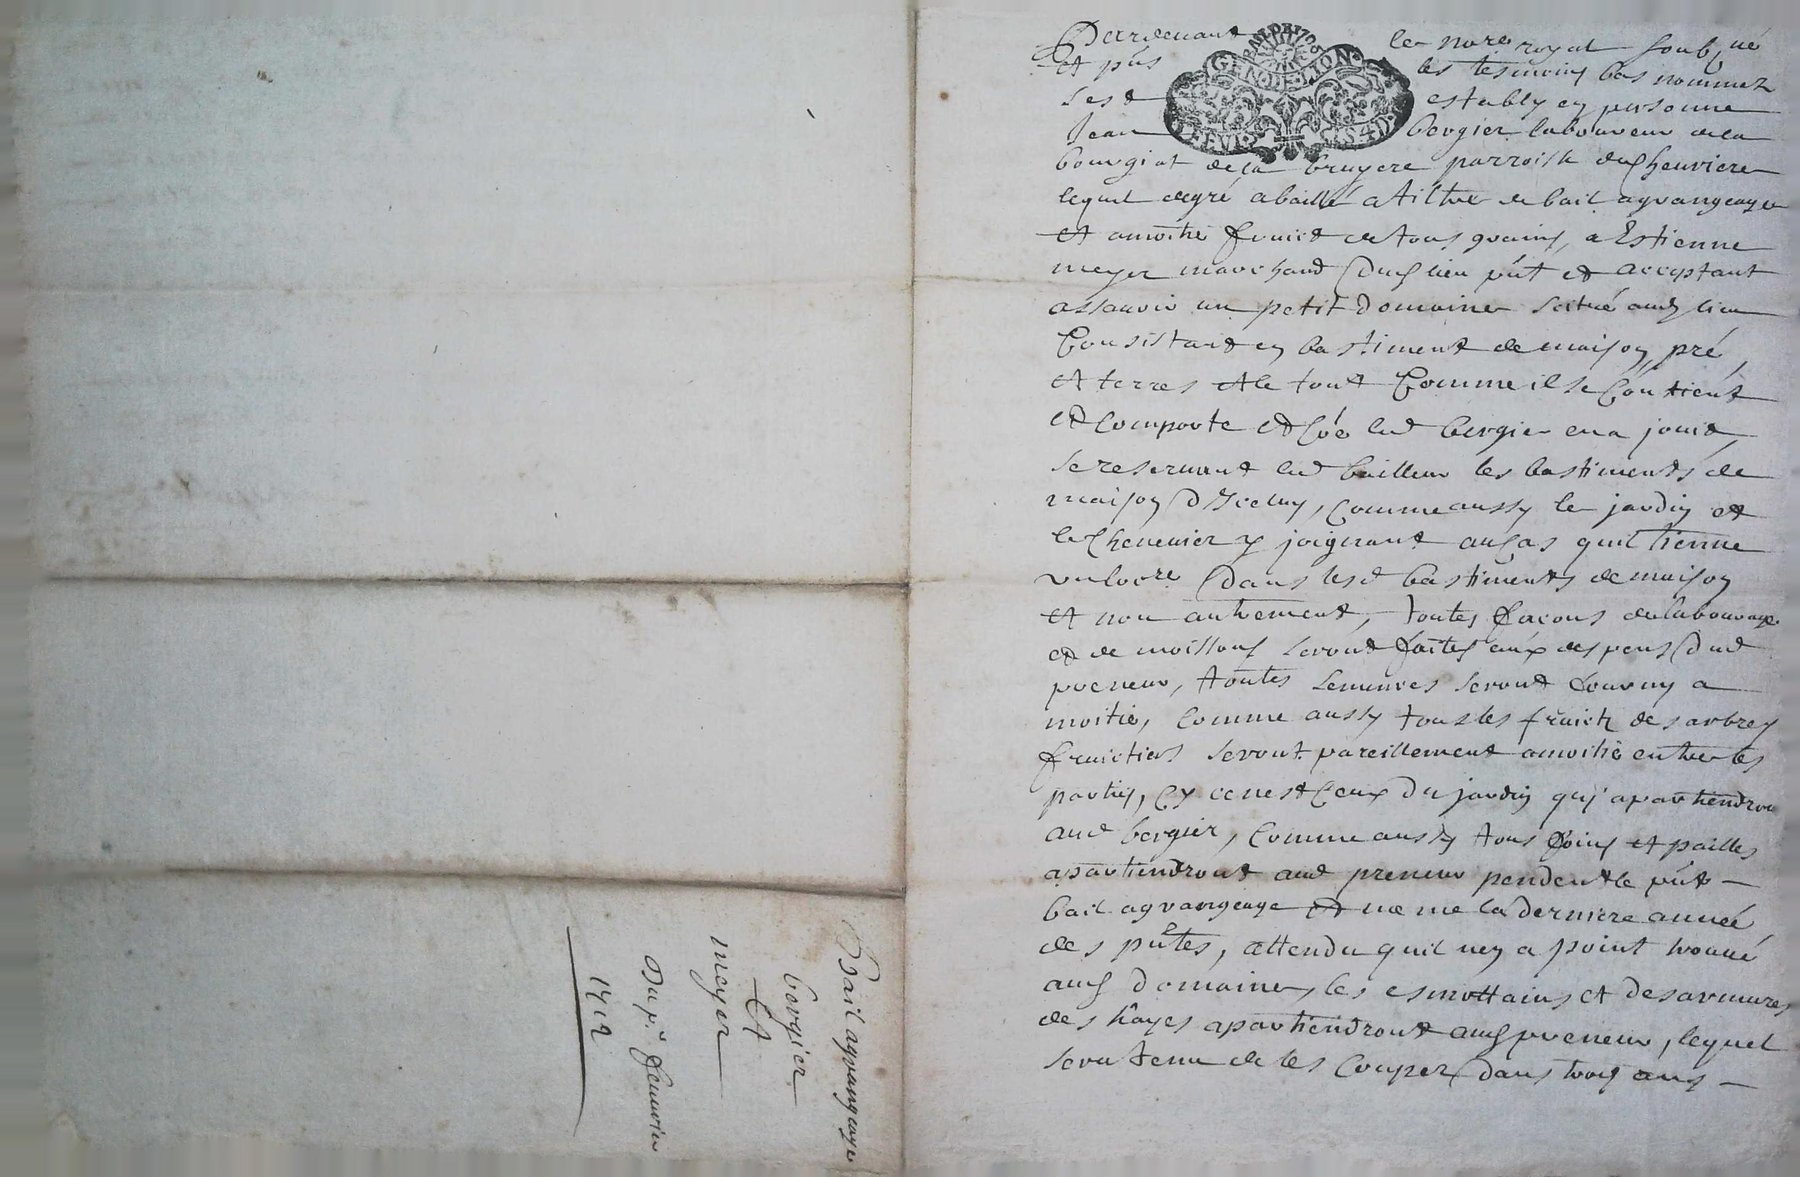 Bail agrangeage
bergier
Et
meyer
Du p.er feuvrier
1712
Pardevant le no.re royal soub.né
et p.ns les tesmoins bas nommez
sest estably en personne
Jean bergier laboureur de la
bourgiat de la bruyere parroisse de Cheuvriere
lequel de gré a baillé a tiltre de bail agrangeage
et a moitié fruict de tous grains, a Estienne
meyer marchand dud lieu p.nt et acceptant
assavoir un petit domaine scitué aud lieu
Consistant en bastiment de maison, pré
et terres et le tout Comme il se Contient
et Comporte et que led bergier en a jouit,
se reservant led bailleur les bastiments de
maison d'Iceluy, Comme aussy le jardin et
le Chenevier y joignant au Cas quil tienne
dans lesd bastiments de maison
et non autrement, toutes façons de labourage
et de moissons seront faites aux despens dud
preneur, toutes semences seront fourny a
moitié, Comme aussy tous les fruicts des arbres
fruictiers seront pareillement a moitié entre les
parties, Ce nest Ceux du jardin quy apartiendront
aud bergier, Comme aussy tous foins et pailles
apartiendront aud preneur pendent le p.nt
bail agrangeage et meme la derniere année
des p.ntes, attendu quil ney a point trouvé
aud domaine, les esmottains et desarmures
des hayes apartiendront aud preneur, lequel
sera tenu de les Couper dans trois ans
GEN DE LION